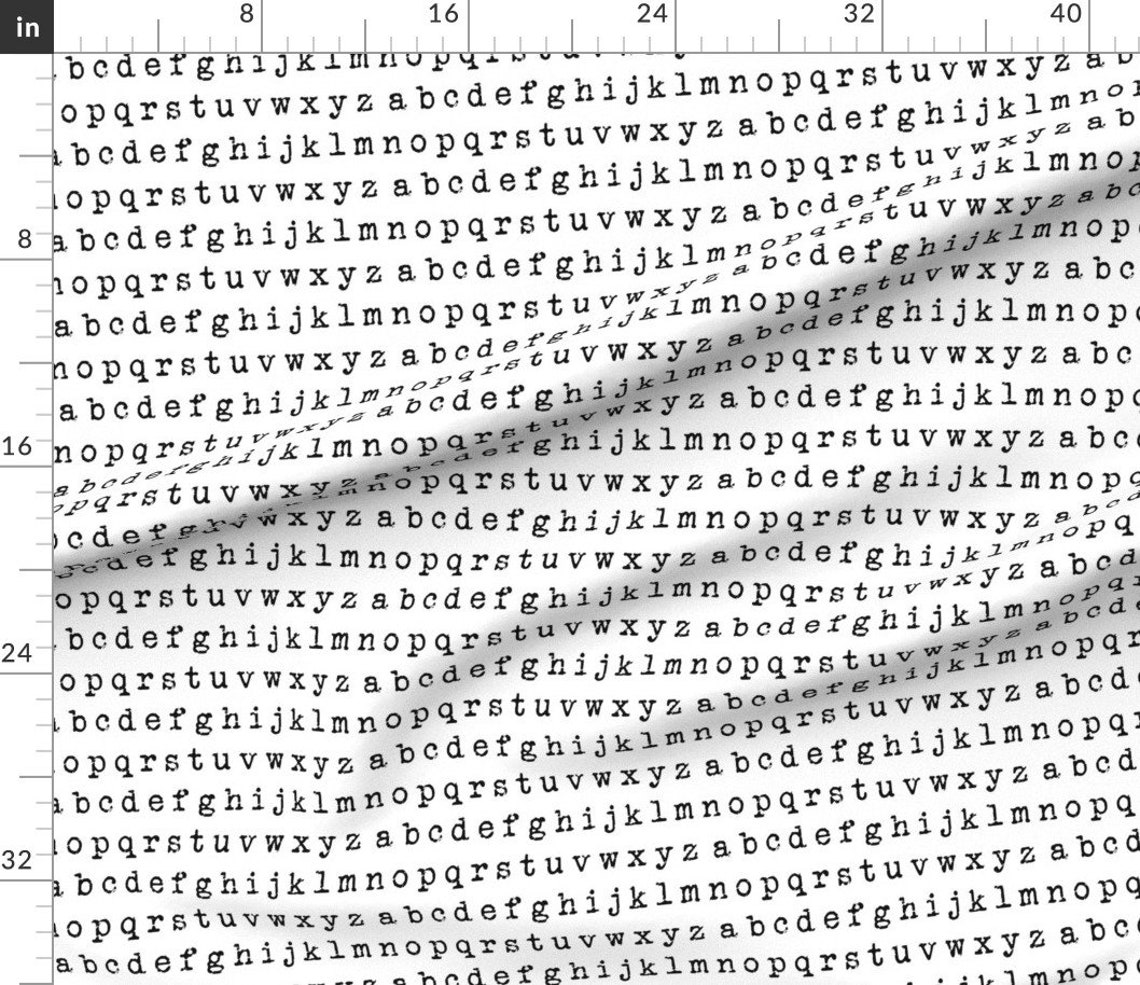 in
8 16 24 32 40
8
16
24
32
bcdefghijk
opqrstuvwxyz abcdefghijklmnopqrstuvwxyz ab
bcdefghijklmnopqrstuvwxyz abcdefghijklmno
opqrstuvwxyz abcdefghijklmnopqrstuvwxyz ab
abcdefghijklmnopqrstuvwxyz abcdefghijklmno
nopqrstuvwxyz abcdefghijklmnopqrstuvwxyz abc
abcdefghijklmnopqrstuvwxyz abcdefghijklmnop
nopqrstuvwxyz abcdefghijklmnopqrstuvwxyz abc
abcdefghijklmnopqrstuvwxyz abcdefghijklmnop
nopqrstuvwxyz abcdefghijklmnopqrstuvwxyz abc
abcdefghijklmnopqrstuvwxyz abcdefghijklmnop
opqrstuvwxyz abcdefghijklmnopqrstuvwxyz abc
cdefg
nopqrstuvwxyz abcdefghijklmnop
wxyz abcdefghijklmnopqrstuvwxyz abc
defghijklmnopqrstuvwxyz abcdefghijklmnopq
opqrstuvwxyz abcdefghijklmnopqrstuvwxyz abcd
bcdefghijklmnopqrstuvwxyz abcdefghijklmnopq
opqrstuvwxyz abcdefghijklmnopqrstuvwxyz abcd
bcdefghijklmnopqrstuvwxyz abcdefghijklmnopqr
opqrstuvwxyz abcdefghijklmnopqrstuvwxyz abcd
abcdefghijklmnopqrstuvwxyz abcdefghijklmnopqr
opqrstuvwxyz abcdefghijklmnopqrstuvwxyz abcd
abcdefghijklmnopqrstuvwxyz abcdefghijklmnopq
opqrstuvwxyz abcdefghijklmnopqrstuvwxyz abcd
abcdefghijklmnopqrstuvwxyz abcdefghijklmnopq
abcdefghijklmnopqrstuvwxyz abc
lmnop